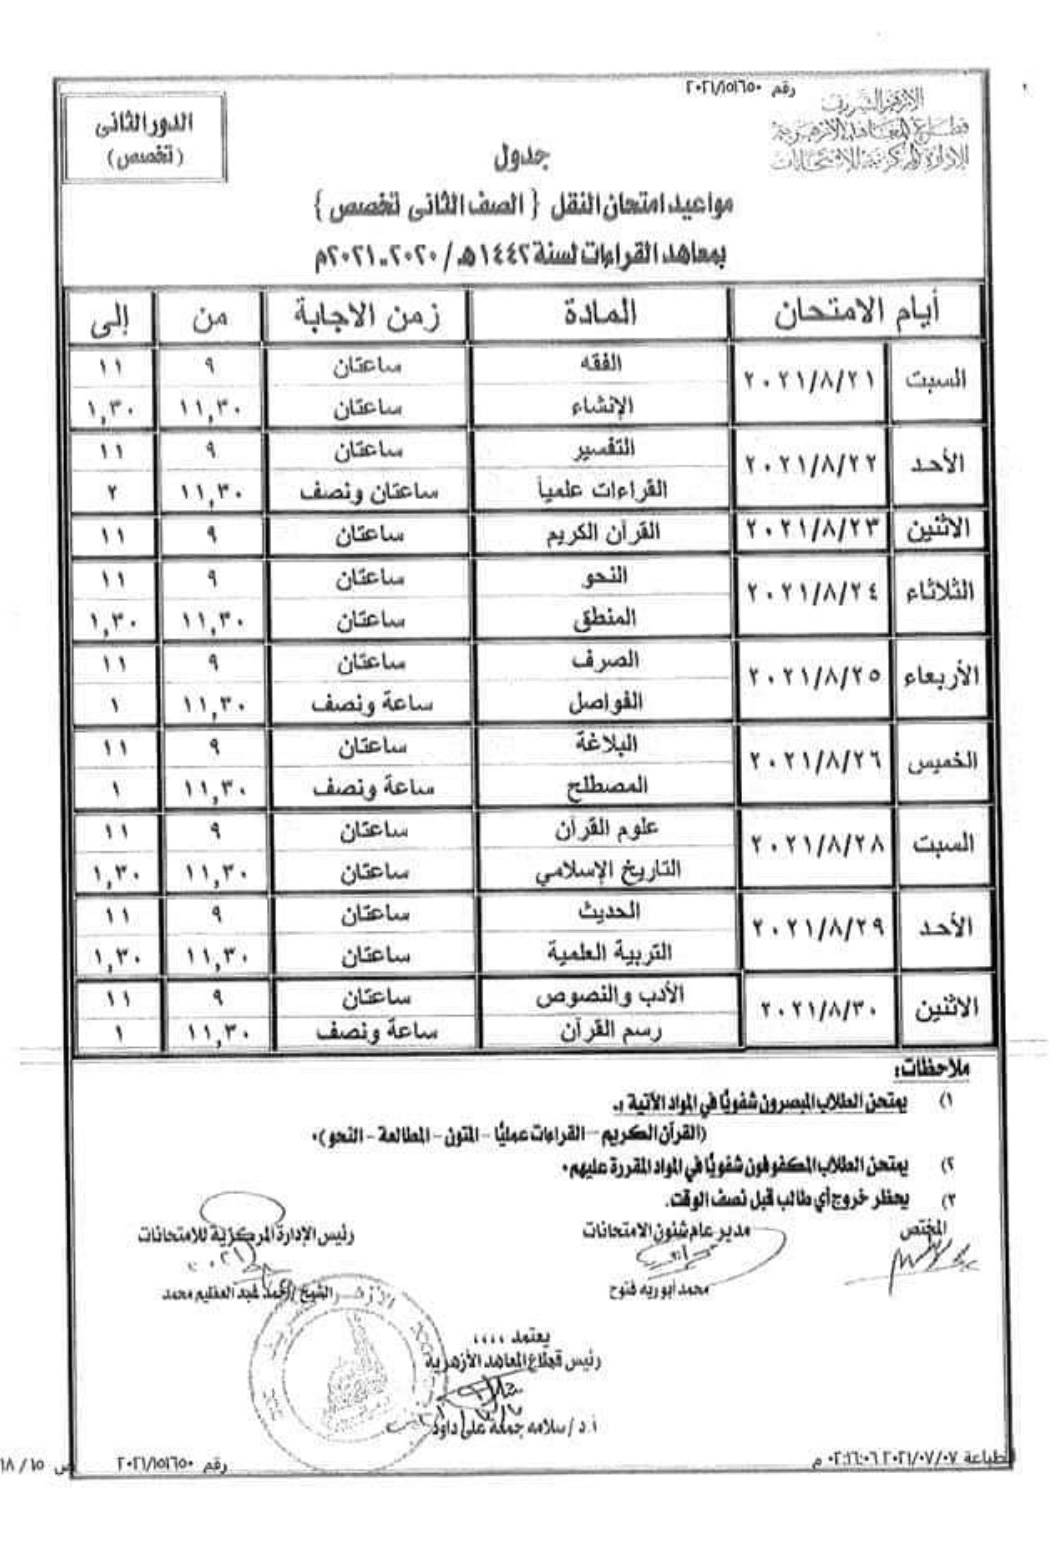 رقم ٢٠٢١/١٥١٦٥٠
الازهر الشريف
قطاع المعاهد الأزهرية
الإدارة المركزية للامتحانات
الدور الثانى
(تخصص)
جدول
مواعيد امتحان النقل { الصف الثانى تخصص }
بمعاهد القراءات لسنة ١٤٤٢هـ / ٢٠٢٠-٢٠٢١م
أيام الامتحان المادة زمن الاجابة من إلى
السبت ٢٠٢١/٨/٢١ الفقه ساعتان ٩ ١١
الإنشاء ساعتان ١١,٣٠ ١,٣٠
الأحد ٢٠٢١/٨/٢٢ التفسير ساعتان ٩ ١١
القراءات علمياً ساعتان ونصف ١١,٣٠ ٢
الاثنين ٢٠٢١/٨/٢٣ القرآن الكريم ساعتان ٩ ١١
الثلاثاء ٢٠٢١/٨/٢٤ النحو ساعتان ٩ ١١
المنطق ساعتان ١١,٣٠ ١,٣٠
الأربعاء ٢٠٢١/٨/٢٥ الصرف ساعتان ٩ ١١
الفواصل ساعة ونصف ١١,٣٠ ١
الخميس ٢٠٢١/٨/٢٦ البلاغة ساعتان ٩ ١١
المصطلح ساعة ونصف ١١,٣٠ ١
السبت ٢٠٢١/٨/٢٨ علوم القرآن ساعتان ٩ ١١
التاريخ الإسلامي ساعتان ١١,٣٠ ١,٣٠
الأحد ٢٠٢١/٨/٢٩ الحديث ساعتان ٩ ١١
التربية العلمية ساعتان ١١,٣٠ ١,٣٠
الاثنين ٢٠٢١/٨/٣٠ الأدب والنصوص ساعتان ٩ ١١
رسم القرآن ساعة ونصف ١١,٣٠ ١
ملاحظات:
١) يمتحن الطلاب المبصرون شفويًا في المواد الآتية :ـ
(القرآن الكريم – القراءات عمليًا – المتون – المطالعة – النحو)٠
٢) يمتحن الطلاب المكفوفون شفويًا في المواد المقررة عليهم٠
٣) يحظر خروج أي طالب قبل نصف الوقت.
المختص مدير عام شئون الامتحانات رئيس الإدارة المركزية للامتحانات
محمد ابوريه فنوح الشيخ / أحمد عبد العظيم محمد
يعتمد ،،،،
رئيس قطاع المعاهد الأزهرية
أ.د / سلامه جمعه على داود
الطباعة ٢٠٢١/٠٧/٠٧ ٠٢:١٦:٠٦ م رقم ٢٠٢١/١٥١٦٥٠ ص ١٥ / ١٨